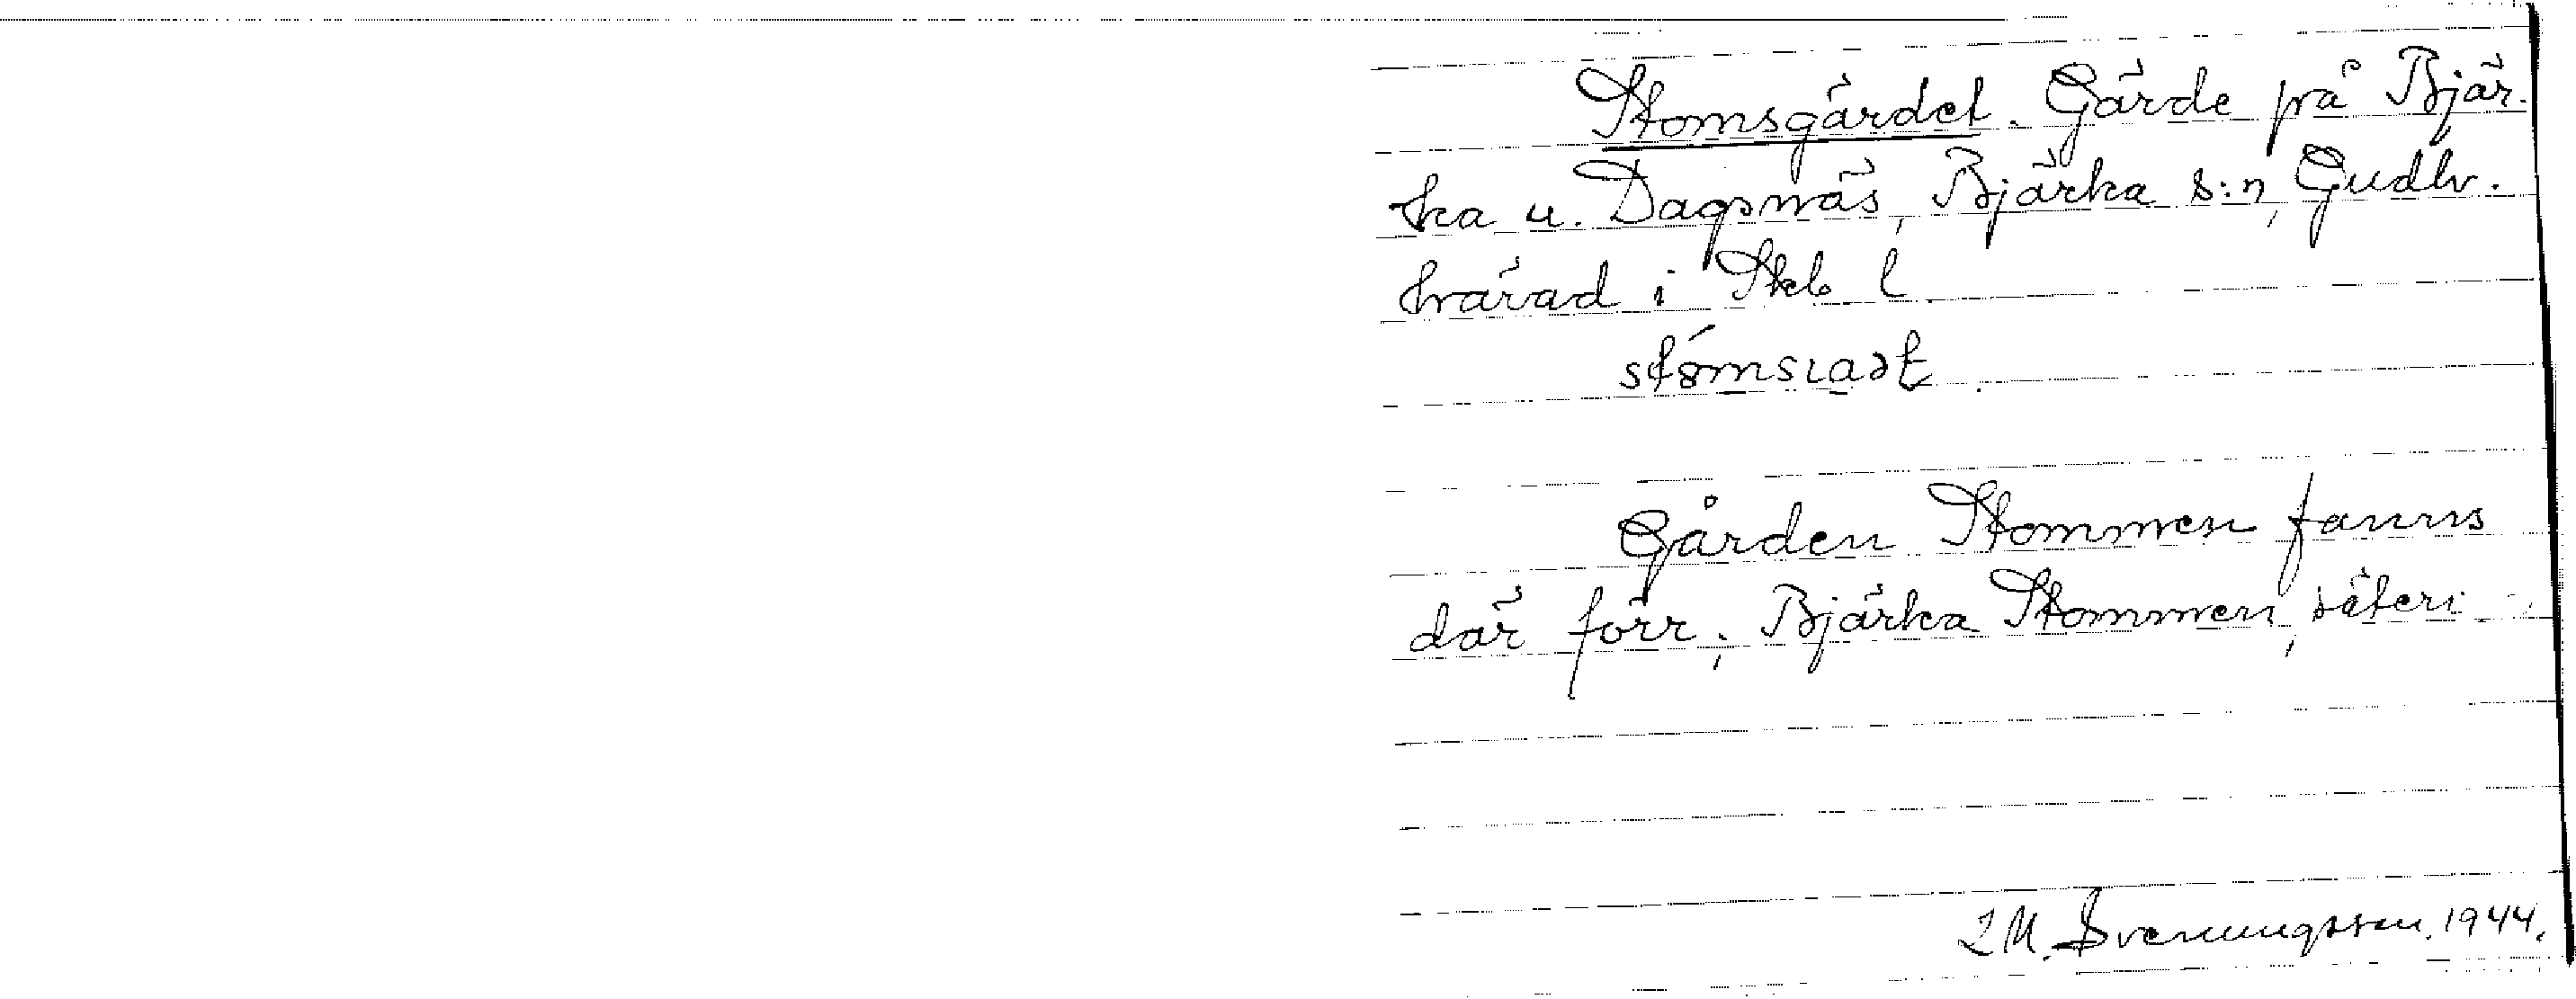 Stomsgärdet. Gärde på Bjär-
ka u. Dagsnäs, Bjärka s:n, Gudh.
härad i Skb l.
Gården Stommen fanns
där förr; Bjärka Stommen, säteri.
L M. Svenungsson. 1944.